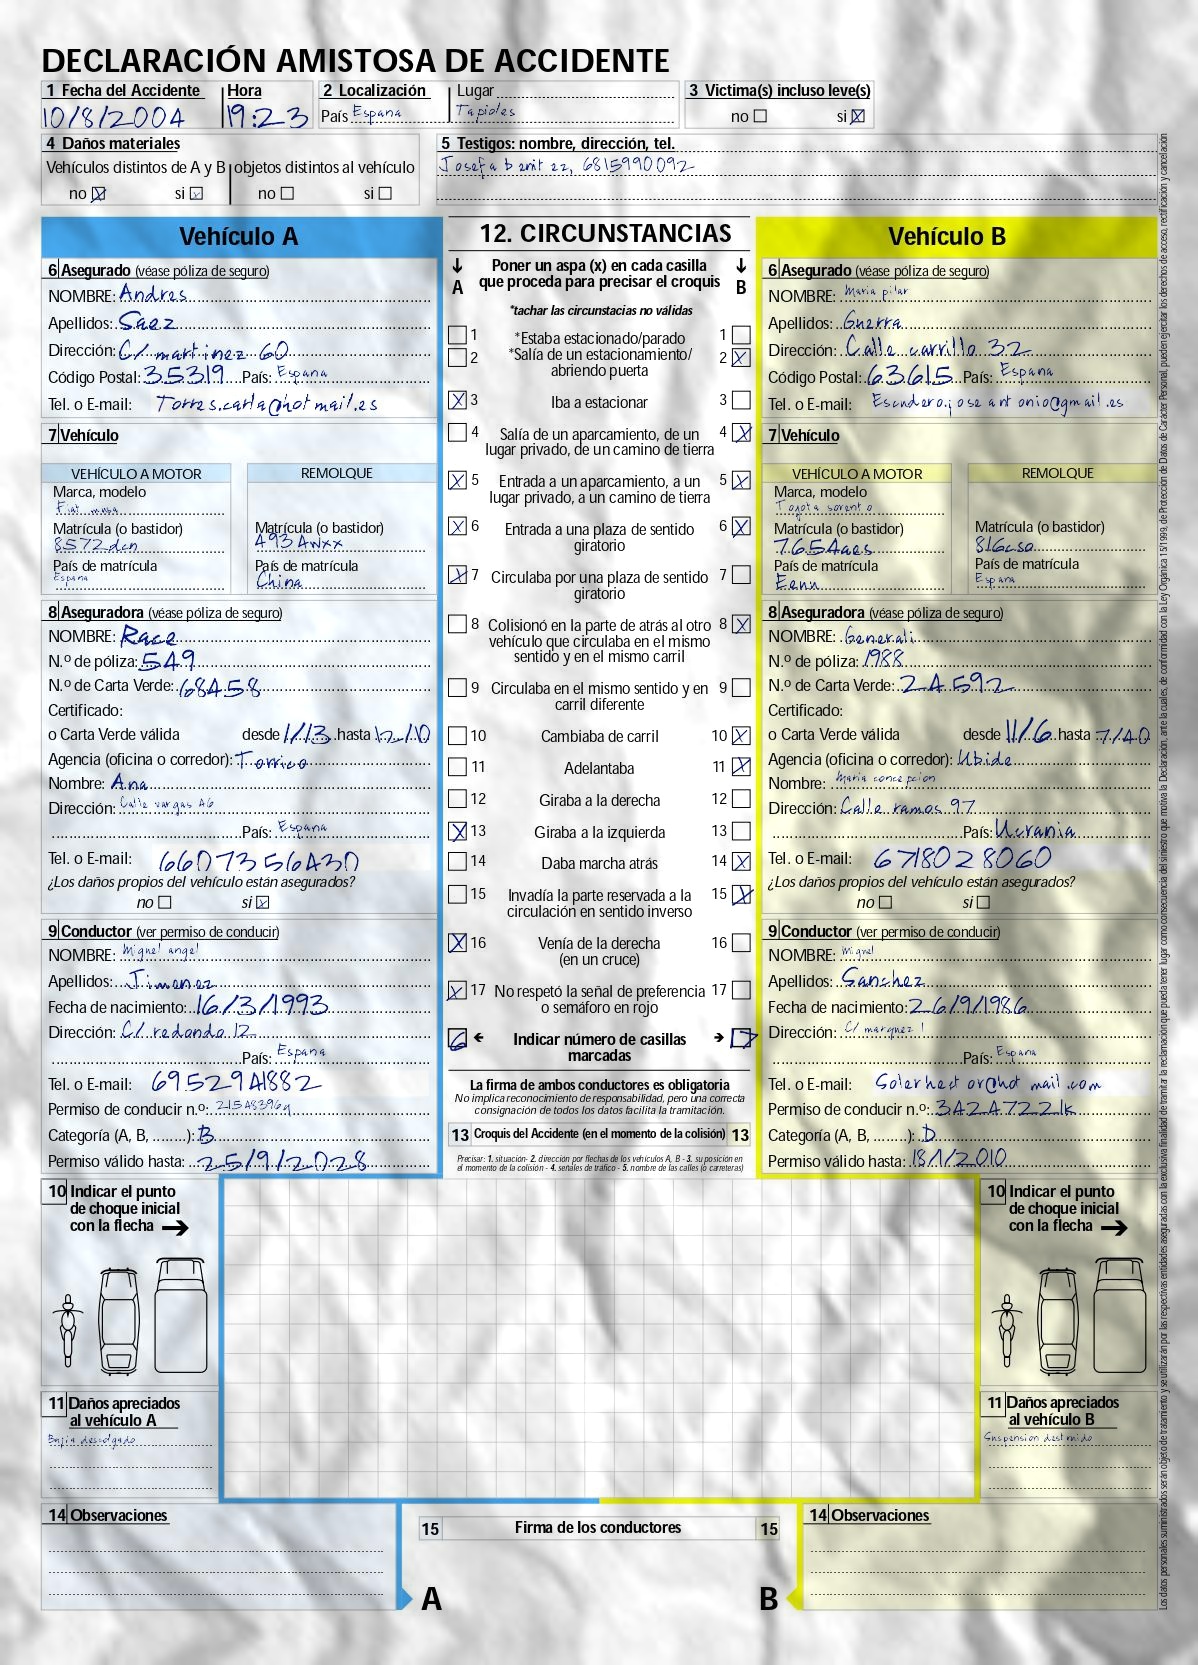 DECLARACIÓN AMISTOSA DE ACCIDENTE
1 Fecha del Accidente Hora 2 Localización Lugar 3 Victima(s) incluso leve(s)
10/8/2004 19:23 País Espana Tapioles no si
4 Daños materiales
Vehículos distintos de A y B objetos distintos al vehículo
no si no si
5 Testigos: nombre, dirección, tel.
Josefa benitez, 6815990092
Vehículo A
6 Asegurado (véase póliza de seguro)
NOMBRE: Andres
Apellidos: Saez
Dirección: C/ martinez 60
Código Postal: 35319 País: Espana
Tel. o E-mail: Torres.carla@hotmail.es
7 Vehículo
VEHÍCULO A MOTOR REMOLQUE
Marca, modelo
Fiat musa
Matrícula (o bastidor) Matrícula (o bastidor)
8572dcn 493Awxx
País de matrícula País de matrícula
Espana China
8 Aseguradora (véase póliza de seguro)
NOMBRE: Race
N.º de póliza: 549
N.º de Carta Verde: 68458
Certificado:
o Carta Verde válida desde 1/13 hasta 12/10
Agencia (oficina o corredor): Torrico
Nombre: Ana
Dirección: Calle vargas 46
País: Espana
Tel. o E-mail: 6607356430
¿Los daños propios del vehículo están asegurados?
no si
9 Conductor (ver permiso de conducir)
NOMBRE: Miguel angel
Apellidos: Jimenez
Fecha de nacimiento: 16/3/1993
Dirección: C/ redondo 12
País: Espana
Tel. o E-mail: 695294882
Permiso de conducir n.º:
Categoría (A, B, ........): B
Permiso válido hasta: 25/9/2028
12. CIRCUNSTANCIAS
A Poner un aspa (x) en cada casilla que proceda para precisar el croquis B
*tachar las circunstacias no válidas
1 *Estaba estacionado/parado 1
2 *Salía de un estacionamiento/ 2
abriendo puerta
3 Iba a estacionar 3
4 Salía de un aparcamiento, de un 4
lugar privado, de un camino de tierra
5 Entrada a un aparcamiento, a un 5
lugar privado, a un camino de tierra
6 Entrada a una plaza de sentido 6
giratorio
7 Circulaba por una plaza de sentido 7
giratorio
8 Colisionó en la parte de atrás al otro 8
vehículo que circulaba en el mismo
sentido y en el mismo carril
9 Circulaba en el mismo sentido y en 9
carril diferente
10 Cambiaba de carril 10
11 Adelantaba 11
12 Giraba a la derecha 12
13 Giraba a la izquierda 13
14 Daba marcha atrás 14
15 Invadía la parte reservada a la 15
circulación en sentido inverso
16 Venía de la derecha 16
(en un cruce)
17 No respetó la señal de preferencia 17
o semáforo en rojo
6 Indicar número de casillas 17
marcadas
La firma de ambos conductores es obligatoria
No implica reconocimiento de responsabilidad, pero una correcta
consignación de todos los datos facilita la tramitación.
13 Croquis del Accidente (en el momento de la colisión) 13
Precisar: 1. situación- 2. dirección por flechas de los vehículos A, B - 3. su posición en
el momento de la colisión - 4. señales de tráfico - 5. nombre de las calles (o carreteras)
Vehículo B
6 Asegurado (véase póliza de seguro)
NOMBRE: Maria pilar
Apellidos: Guerra
Dirección: Calle carrillo 32
Código Postal: 63615 País: Espana
Tel. o E-mail: Escudero.jose antonio@gmail.es
7 Vehículo
VEHÍCULO A MOTOR REMOLQUE
Marca, modelo
Toyota sorento
Matrícula (o bastidor) Matrícula (o bastidor)
7654aes 816cso
País de matrícula País de matrícula
Eenn Espana
8 Aseguradora (véase póliza de seguro)
NOMBRE: Generali
N.º de póliza: 1988
N.º de Carta Verde: 24592
Certificado:
o Carta Verde válida desde 11/6 hasta 7/40
Agencia (oficina o corredor): Ubide
Nombre: Maria concepcion
Dirección: Calle ramos 97
País: Ucrania
Tel. o E-mail: 6718028060
¿Los daños propios del vehículo están asegurados?
no si
9 Conductor (ver permiso de conducir)
NOMBRE: Miguel
Apellidos: Sanchez
Fecha de nacimiento: 26/9/1986
Dirección: C/ marquez 1
País: Espana
Tel. o E-mail: Solerhector@hotmail.com
Permiso de conducir n.º: 34247221k
Categoría (A, B, ........): D
Permiso válido hasta: 18/1/2010
10 Indicar el punto
de choque inicial
con la flecha
11 Daños apreciados
al vehículo A
Bujia descolgado
10 Indicar el punto
de choque inicial
con la flecha
11 Daños apreciados
al vehículo B
Suspension destruido
14 Observaciones
15 Firma de los conductores 15
A B
14 Observaciones
Los datos personales suministrados serán objeto de tratamiento y se utilizarán por las respectivas entidades aseguradas con la exclusiva finalidad de tramitar la reclamación que pueda tener lugar como consecuencia del siniestro que motiva la Declaración, ante la cuales, de conformidad con la Ley Orgánica 15/1999, de Protección de Datos de Carácter Personal, pueden ejercitar los derechos de acceso, rectificación y cancelación